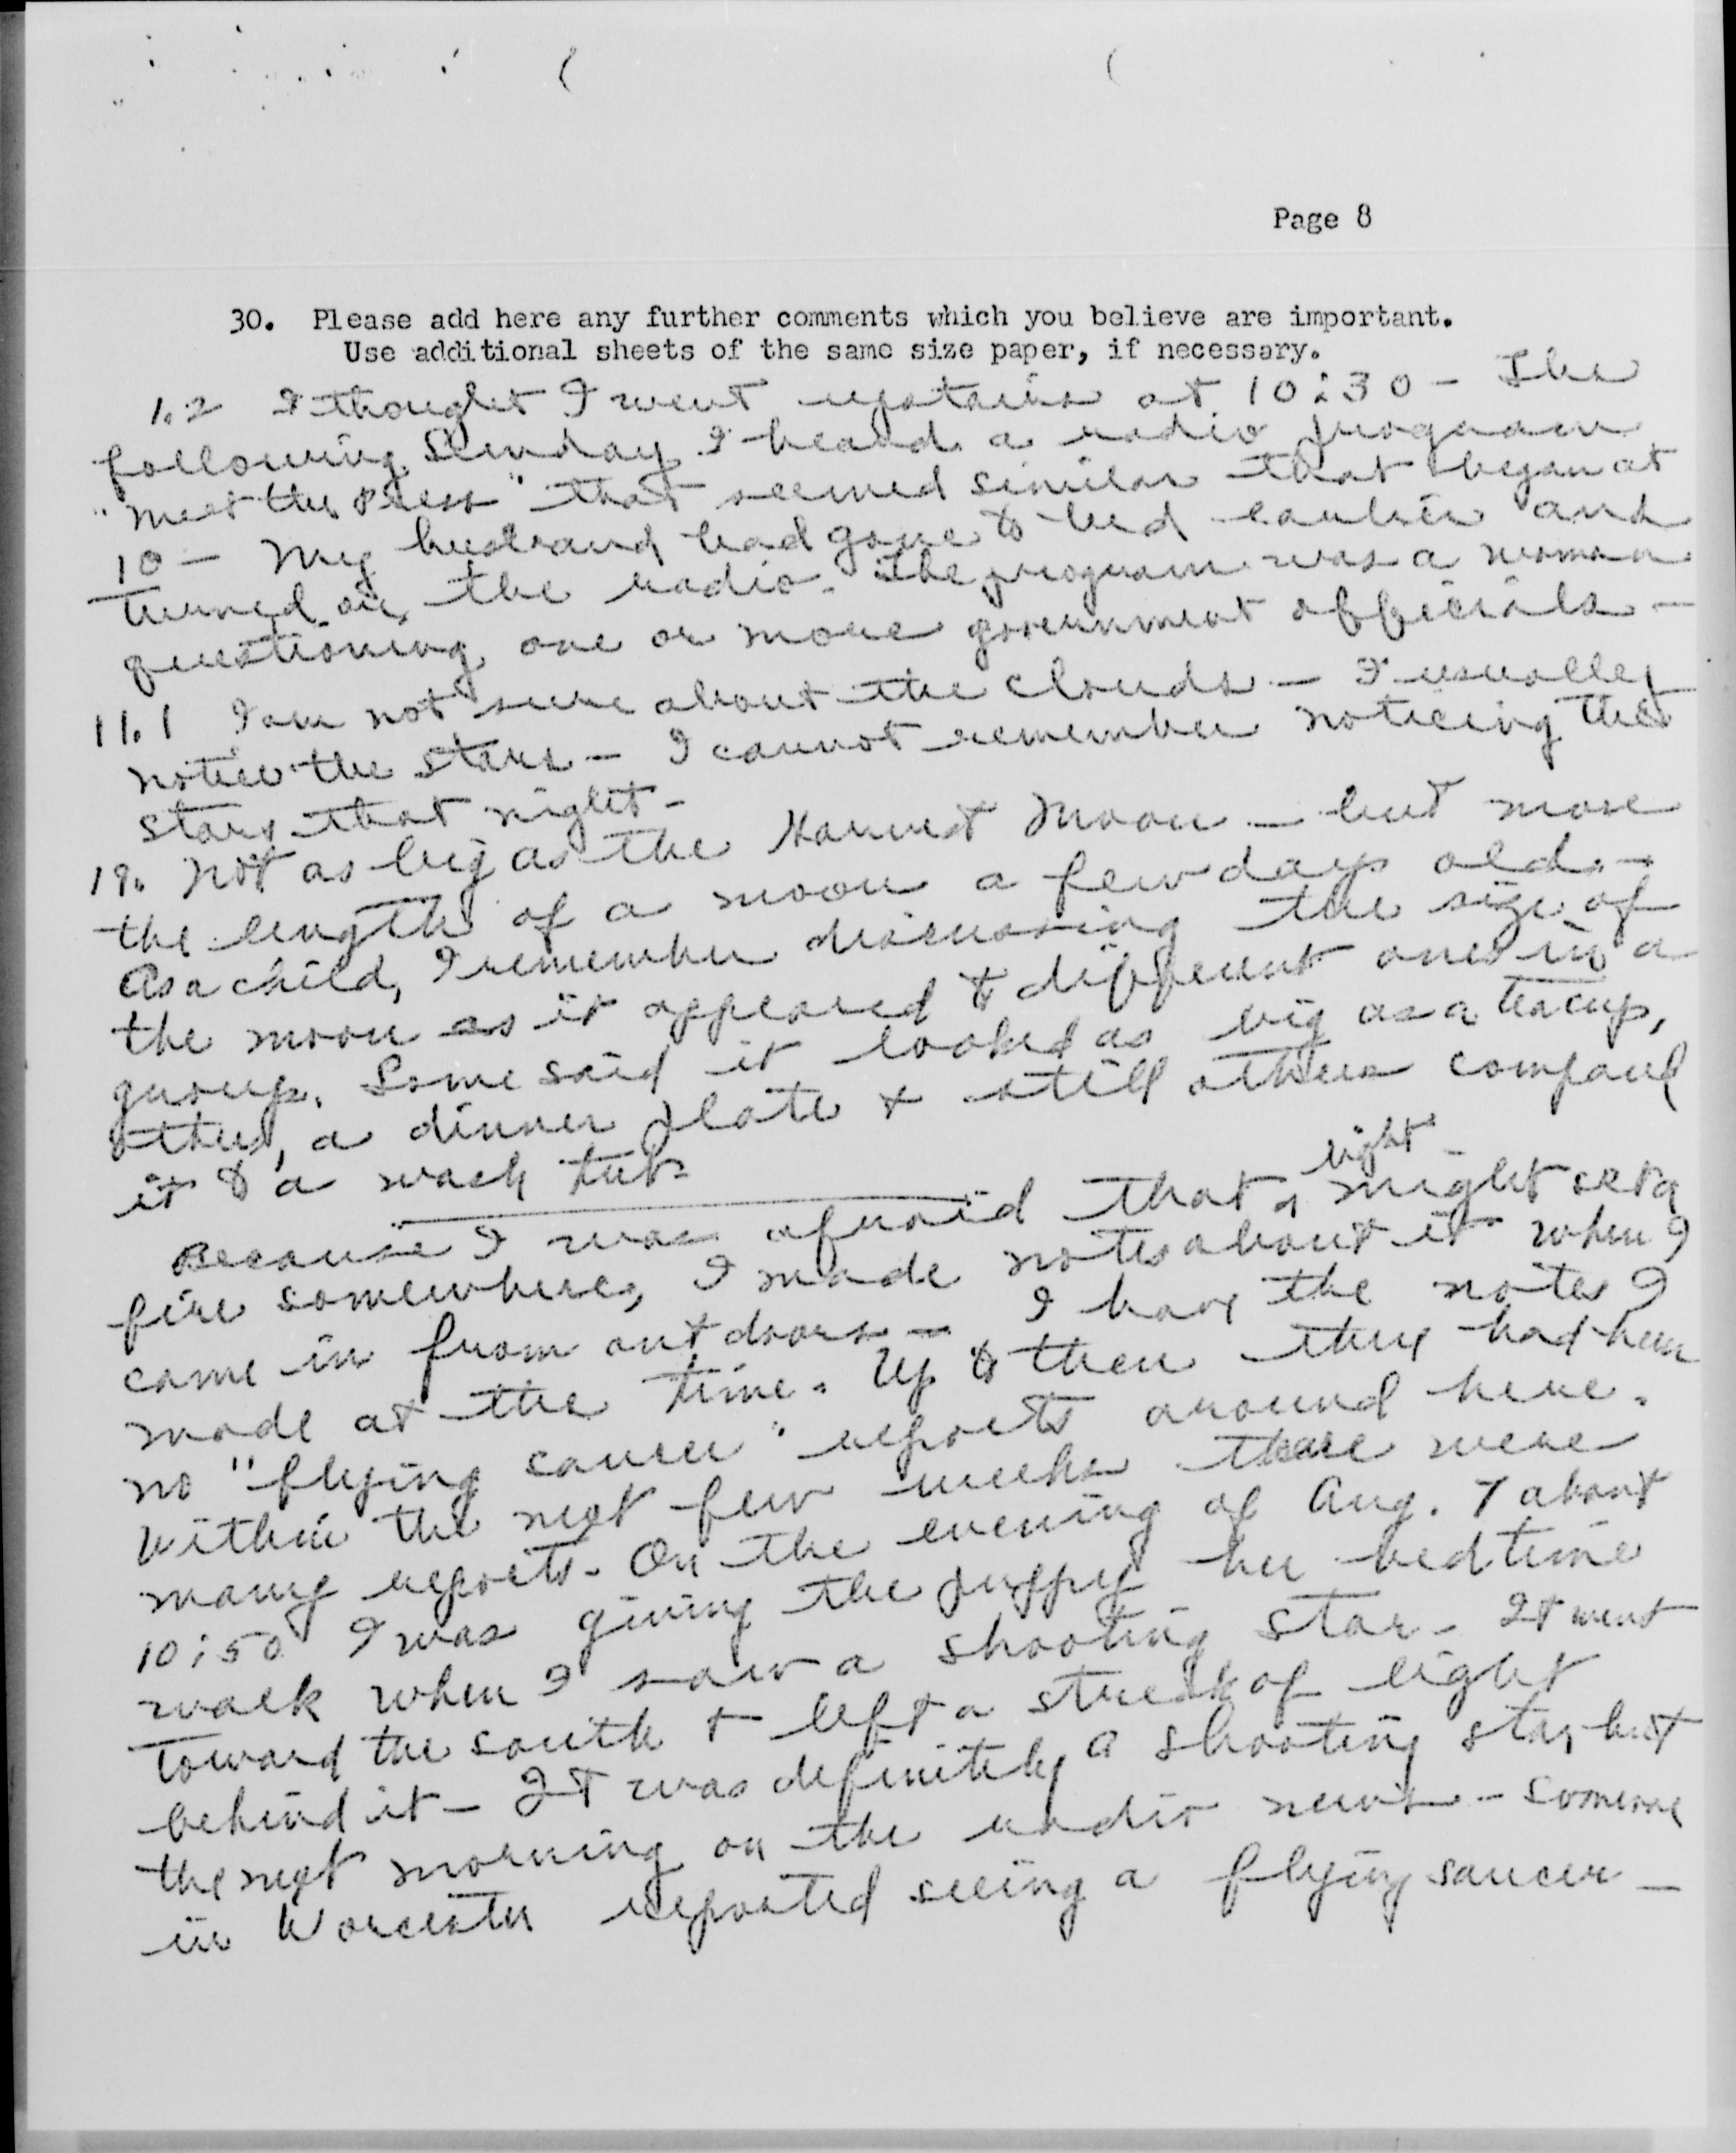 Page 8
30. Please add here any further comments which you believe are important.
Use additional sheets of the same size paper, if necessary.
1.2 I thought I went upstairs at 10:30 - The
following Sunday I heard a radio program
"Meet the Press" that seemed similar that began at
10 - My husband had gone to bed earlier and
turned on the radio. The program was a woman
questioning one or more government officials -
11.1 I am not sure about the clouds - I usually
notice the stars - I cannot remember noticing the
stars that night -
19. Not as big as the Harvest Moon - but more
the length of a moon a few days old. -
As a child, I remember discussing the size of
the moon as it appeared to different ones in a
group. Some said it looked as big as a teacup,
others, a dinner plate + still others compared
it to a wash tub.
light
Because I was afraid that a might set a
fire somewhere, I made notes about it when I
came in from outdoors - I have the notes I
made at the time. Up to then they had been
no "flying saucer" reports around here.
Within the next few weeks there were
many reports. On the evening of Aug. 7 about
10:50 I was giving the puppy her bedtime
walk when I saw a shooting star. It went
toward the south + left a streak of light
behind it - It was definitely a shooting star, but
the next morning on the radio news - someone
in Worcester reported seeing a flying saucer -